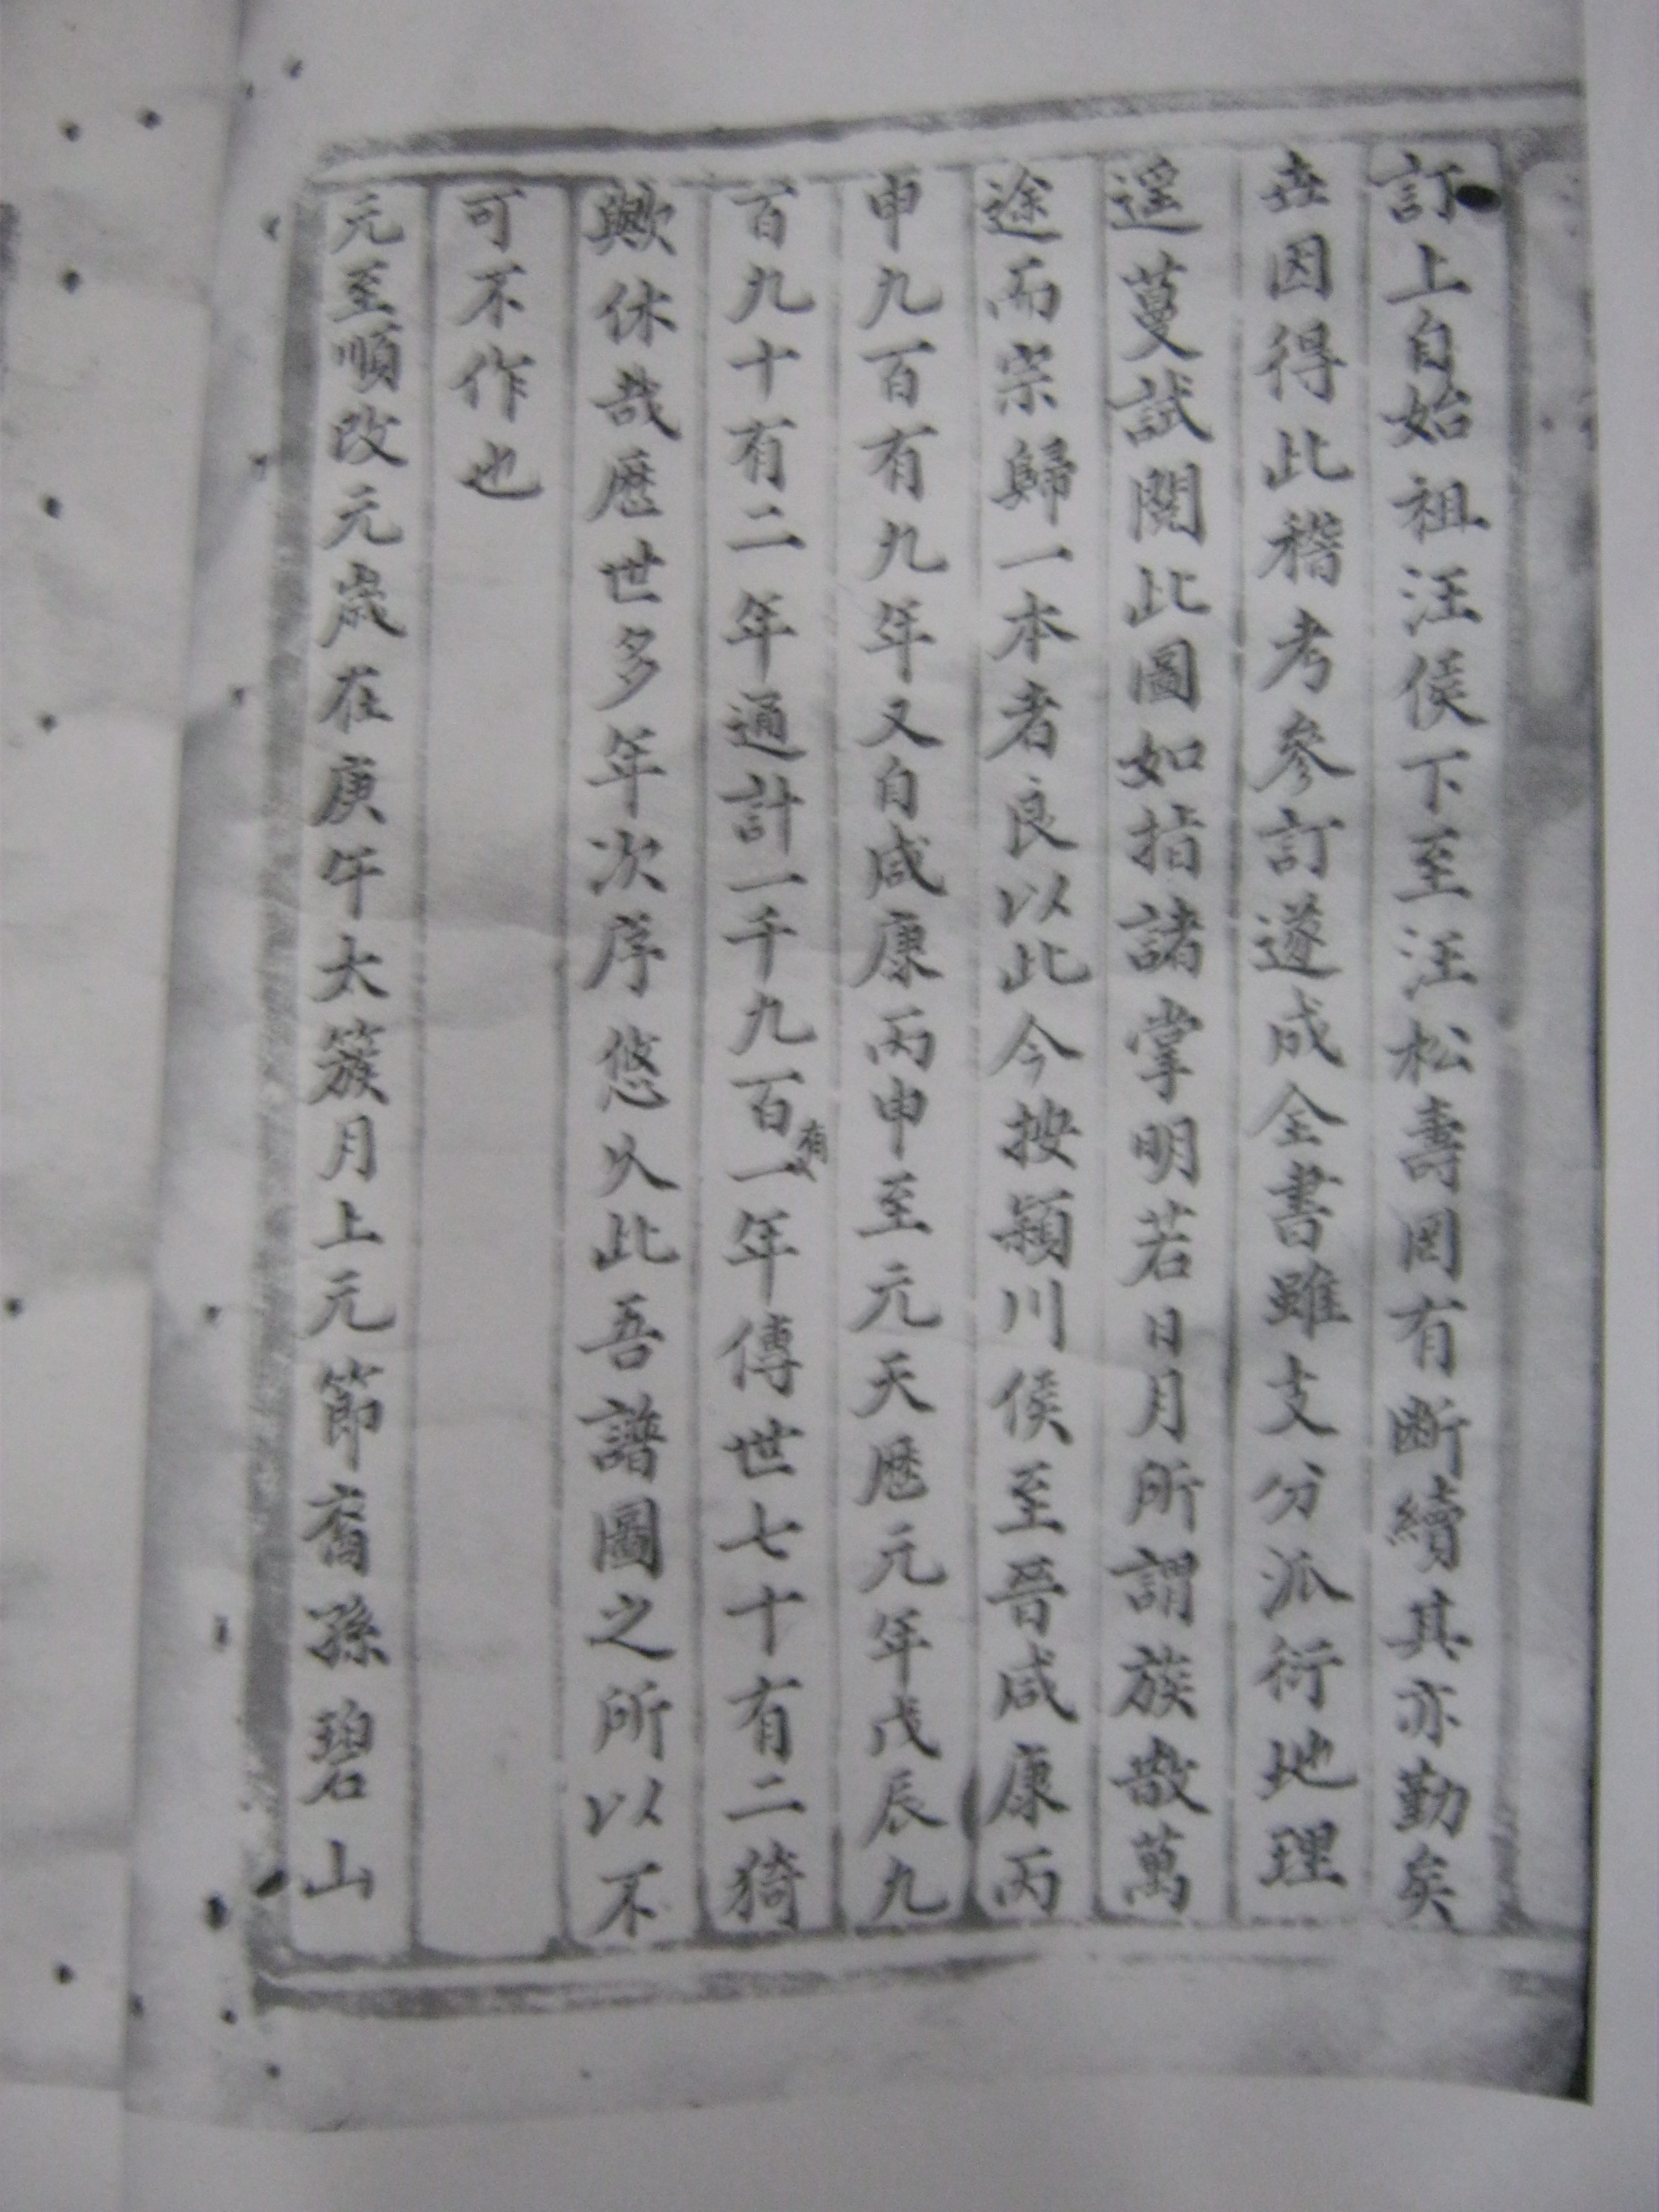 訂上自始祖汪侯下至汪松壽罔有斷續其亦勤矣
玆因得此稽考參訂遂成全書雖支分派衍地理
遥蔓試閱此圖如指諸掌明若日月所謂族散萬
途而宗歸一本者良以此今按潁川侯至晉咸康丙
申九百有九年又自咸康丙申至元天曆元年戊辰九
百九十有二年通計一千九百有一年傳世七十有二猗
歟休哉歷世多年次序悠久此吾譜圖之所以不
可不作也
元至順改元歲在庚午太簇月上元節裔孫碧山